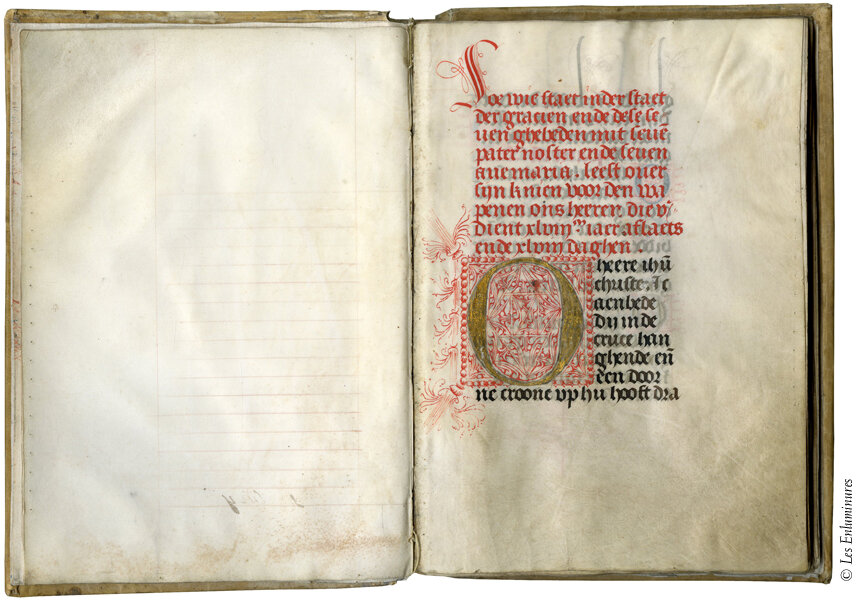 Soe wie staet in der staet
der gracien ende dese se
uen ghebeden mit seuē
pater noster ende seuen
aue maria . leest ouer
sijn knien voor den wa
penen ons heeren die v͛
dient xlvim iaer aflaets
ende xlvi daghen
O heere ihū
christe . Ic
aenbede
dij in de
cruce han
ghende eñ
een door
ne croone vp hu hooft dra
© Les Enluminures